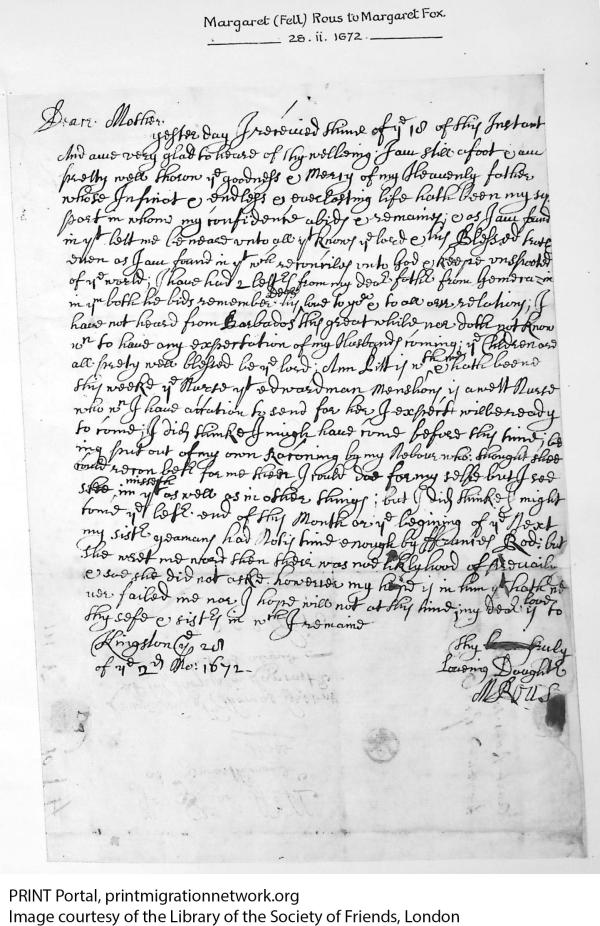 Margaret (Fell) Rous to Margaret Fox.
28. ii. 1672.
Deare Mother.
yesterday I received thine of yᵉ 18 of this Instant
And ame very glad to heare of thy wellbeing I am still afoot & am
pretty well throw yᵉ goodness & Mercy of my Heavenly father
whose Infinit & endless & everlasting life hath been my sup
port in whom my confidence abids & remaines; & as I am found
in yᵗ lett me be neare unto all yᵗ knows yᵉ lord & his Blessed truth
even as I am found in yᵗ wᶜʰ reconciles unto God & keeps unspotted
of yᵉ world; I have had 2 letters from my dear father from Gemeca in
in yᵐ both he bids remember his deare love to you & to all our relations; I
have not heard from Barbados this great while nor doth not know
wⁿ to have any expectation of my Husbands coming; yᵉ Children are
all prety well blessed be yᵉ lord; Ann Litt is wᵗʰ me & hath beene
this weeke yᵉ Nurse yᵗ edward man Menshons is a wett Nurse
who wⁿ I have acation to send for her I expect will be ready
to come; I did thinke I migh have come before this time; be
ing put out of my own reconing by my Nebour who thought shee
could recon bett for me then I could doe for my selfe but I see
shee misseth in yᵗ as well as in other things; but I did thinke I might
come yᵉ lett end of this Month or yᵉ begining of yᵉ Next
my sistʳ yeamans had Notis time enough by Frances Rod; but
she writ me word then their was noe likly hood of prevailing
& soe she did not aske. however my hope is in him yᵗ hath ne
ver failed me nor I hope will not at this time; my dear love is to
thy selfe & sistʳs in wᶜʰ I remaine
Kingston yᵉ 28
of yᵉ 2ᵈ Mo: 1672.
thy truly
loveing Daughtʳ
M Rous
PRINT Portal, printmigrationnetwork.org
Image courtesy of the Library of the Society of Friends, London